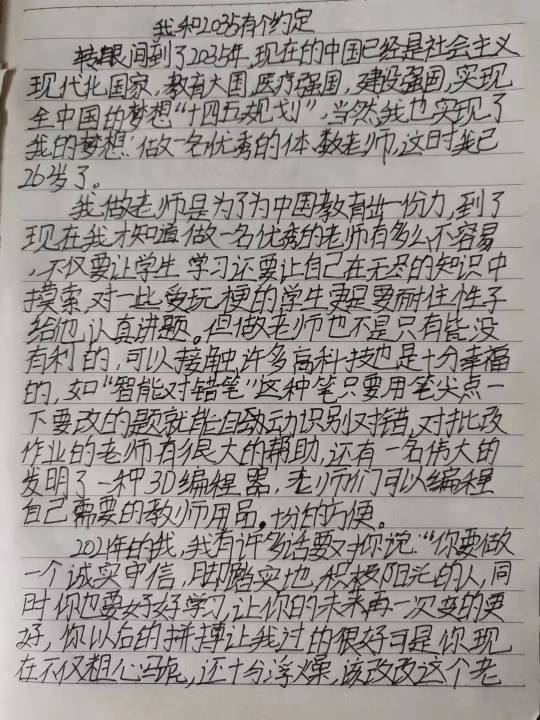 我和2035有个约定
转眼间到了2035年,现在的中国已经是社会主义
现代化国家,教育大国,医疗强国,建设强国,实现
全中国的梦想“十四五规划”,当然,我也实现了
我的梦想:做一名优秀的体教老师,这时我已
26岁了。
我做老师是为了为中国教育出一份力,到了
现在我才知道做一名优秀的老师有多么不容易
,不仅要让学生学习还要让自己在无尽的知识中
摸索,对一些爱玩梗的学生更是要耐住性子
给他认真讲题。但做老师也不是只有
有利的,可以接触许多高科技也是十分幸福
的,如“智能对错笔”这种笔只要用笔尖点一
下要改的题就能自动识别对错,对批改
作业的老师有很大的帮助,还有一名伟大的
发明了一种3D编程器,老师们可以编程
自己需要的教师用品。十分的方便。
2021年的我,我有许多话要对你说:“你要做
一个诚实守信,脚踏实地,积极阳光的人,同
时你也要好好学习,让你的未来再一次变的更
好,你以后的拼搏让我过的很好可是你现
在不仅粗心马虎,还十分浮燥,该改改这个老